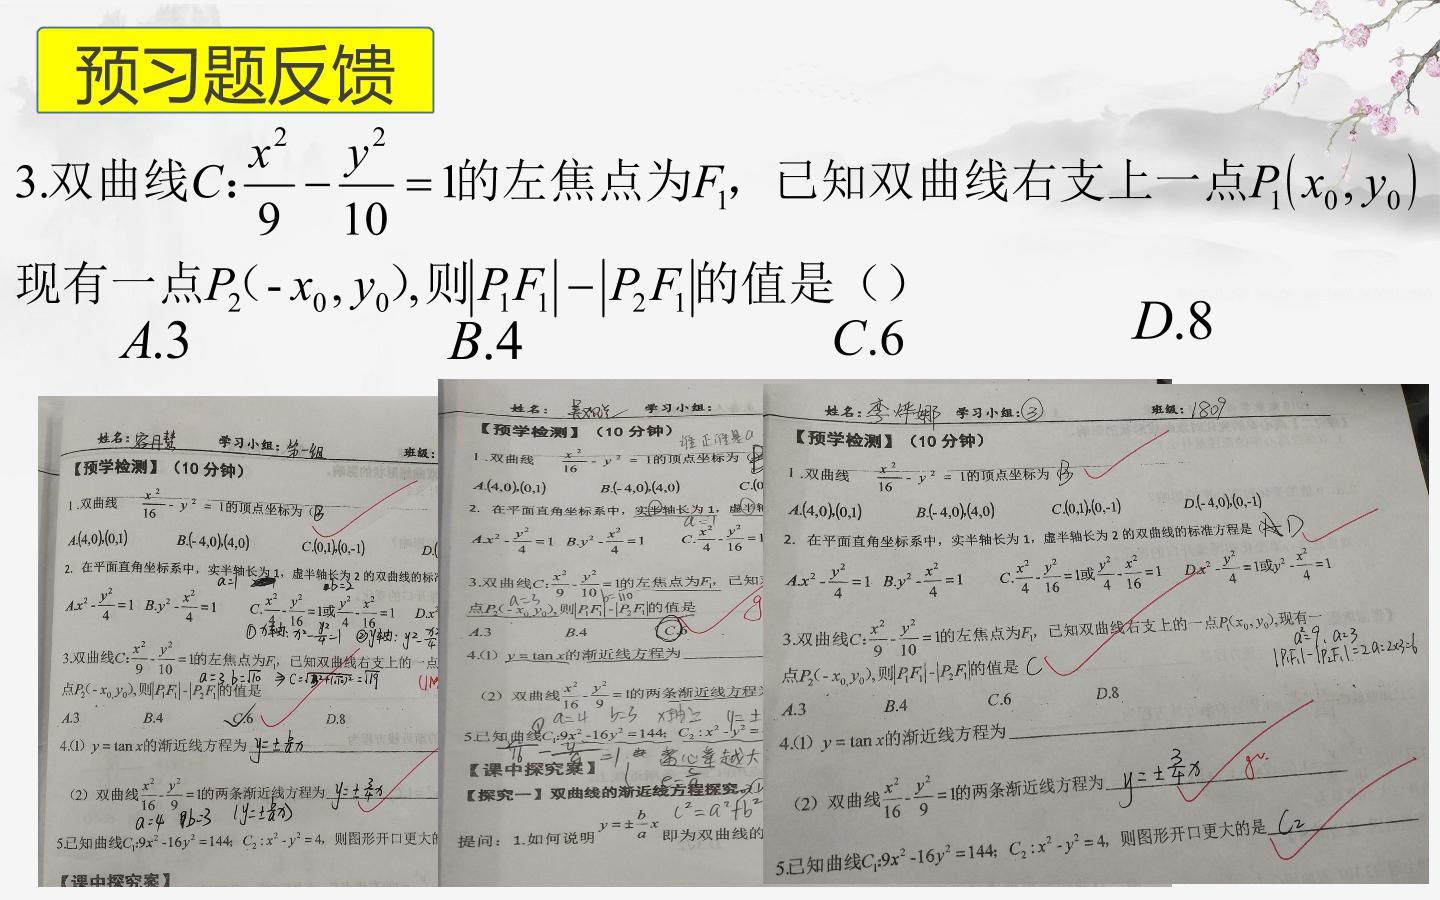 预习题反馈
3.双曲线C:x²/9-y²/10=1的左焦点为F₁，已知双曲线右支上一点P₁(x₀,y₀)
现有一点P₂(-x₀,y₀),则|P₁F₁|-|P₂F₁|的值是（）
A.3 B.4 C.6 D.8
姓名： 学习小组:第一组 班级:
【预学检测】（10分钟）
1.双曲线 x²/16-y²=1的顶点坐标为（B
A.(4,0),(0,1) B.(-4,0),(4,0) C.(0,1),(0,-1) D.(
2. 在平面直角坐标系中，实半轴长为1，虚半轴长为2的双曲线的标
a=1 b=2
A.x²-y²/4=1 B.y²-x²/4=1 C.x²/4-y²/16=1或y²/4-x²/16=1 D.x²
3.双曲线C:x²/9-y²/10=1的左焦点为F₁，已知双曲线右支上的一点
点P₂(-x₀,y₀),则|P₁F₁|-|P₂F₁|的值是
A.3 B.4 C.6 D.8
4.(1) y=tan x的渐近线方程为 y=±b/a x
(2) 双曲线x²/16-y²/9=1的两条渐近线方程为 y=±3/4 x
a=4 b=3 (y=±b/a x)
5.已知曲线C₁:9x²-16y²=144；C₂:x²-y²=4，则图形开口更大的
【课中探究案】
姓名： 学习小组：
【预学检测】（10分钟）
谁正谁是a
1.双曲线 x²/16-y²=1的顶点坐标为（B
A.(4,0),(0,1) B.(-4,0),(4,0) C.(0
2. 在平面直角坐标系中，实半轴长为1，虚半轴
a=1
A.x²-y²/4=1 B.y²-x²/4=1 C.x²/4-y²/16=1
3.双曲线C:x²/9-y²/10=1的左焦点为F₁，已知
a=3 b=√10
点P₂(-x₀,y₀),则|P₁F₁|-|P₂F₁|的值是
A.3 B.4 C.6
4.(1) y=tan x的渐近线方程为
(2) 双曲线x²/16-y²/9=1的两条渐近线方程为
a=4 b=3 y=±
5.已知曲线C₁:9x²-16y²=144；C₂:x²-y²=
离心率越大
【课中探究案】
【探究一】双曲线的渐近线方程探究
c²=a²+b²
提问：1.如何说明 y=±b/a x 即为双曲线的
姓名： 学习小组:③ 班级:1809
【预学检测】（10分钟）
1.双曲线 x²/16-y²=1的顶点坐标为（B
A.(4,0),(0,1) B.(-4,0),(4,0) C.(0,1),(0,-1) D.(-4,0),(0,-1)
2. 在平面直角坐标系中，实半轴长为1，虚半轴长为2的双曲线的标准方程是（D
A.x²-y²/4=1 B.y²-x²/4=1 C.x²/4-y²/16=1或y²/4-x²/16=1 D.x²-y²/4=1或y²-x²/4=1
3.双曲线C:x²/9-y²/10=1的左焦点为F₁，已知双曲线右支上的一点P₁(x₀,y₀),现有一
a²=9，a=3
点P₂(-x₀,y₀),则|P₁F₁|-|P₂F₁|的值是 C
|P₁F₁|-|P₂F₁|=2a=2x3=6
A.3 B.4 C.6 D.8
4.(1) y=tan x的渐近线方程为
(2) 双曲线x²/16-y²/9=1的两条渐近线方程为 y=±3/4 x
5.已知曲线C₁:9x²-16y²=144；C₂:x²-y²=4，则图形开口更大的是 C₂